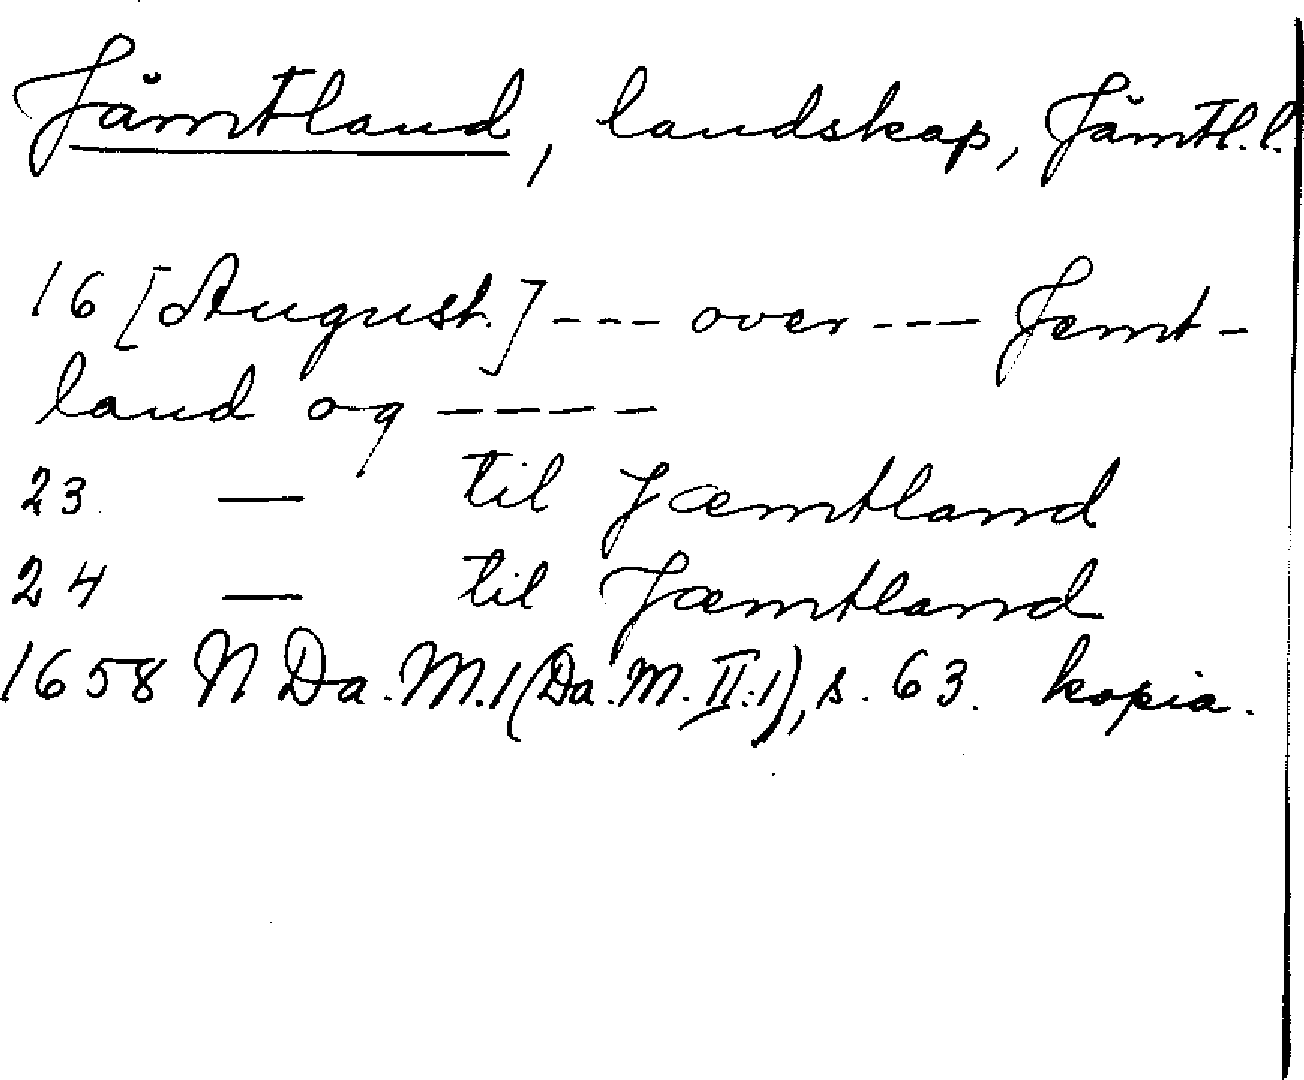 Jämtland, landskap, Jämtl.l.
16 [August.] --- over --- Jemt-
land og ----
23. — til Jæmtland
24 — til Jæmtland
1658 N Da. M. 1 (Da. M. II:1), s. 63. kopia.